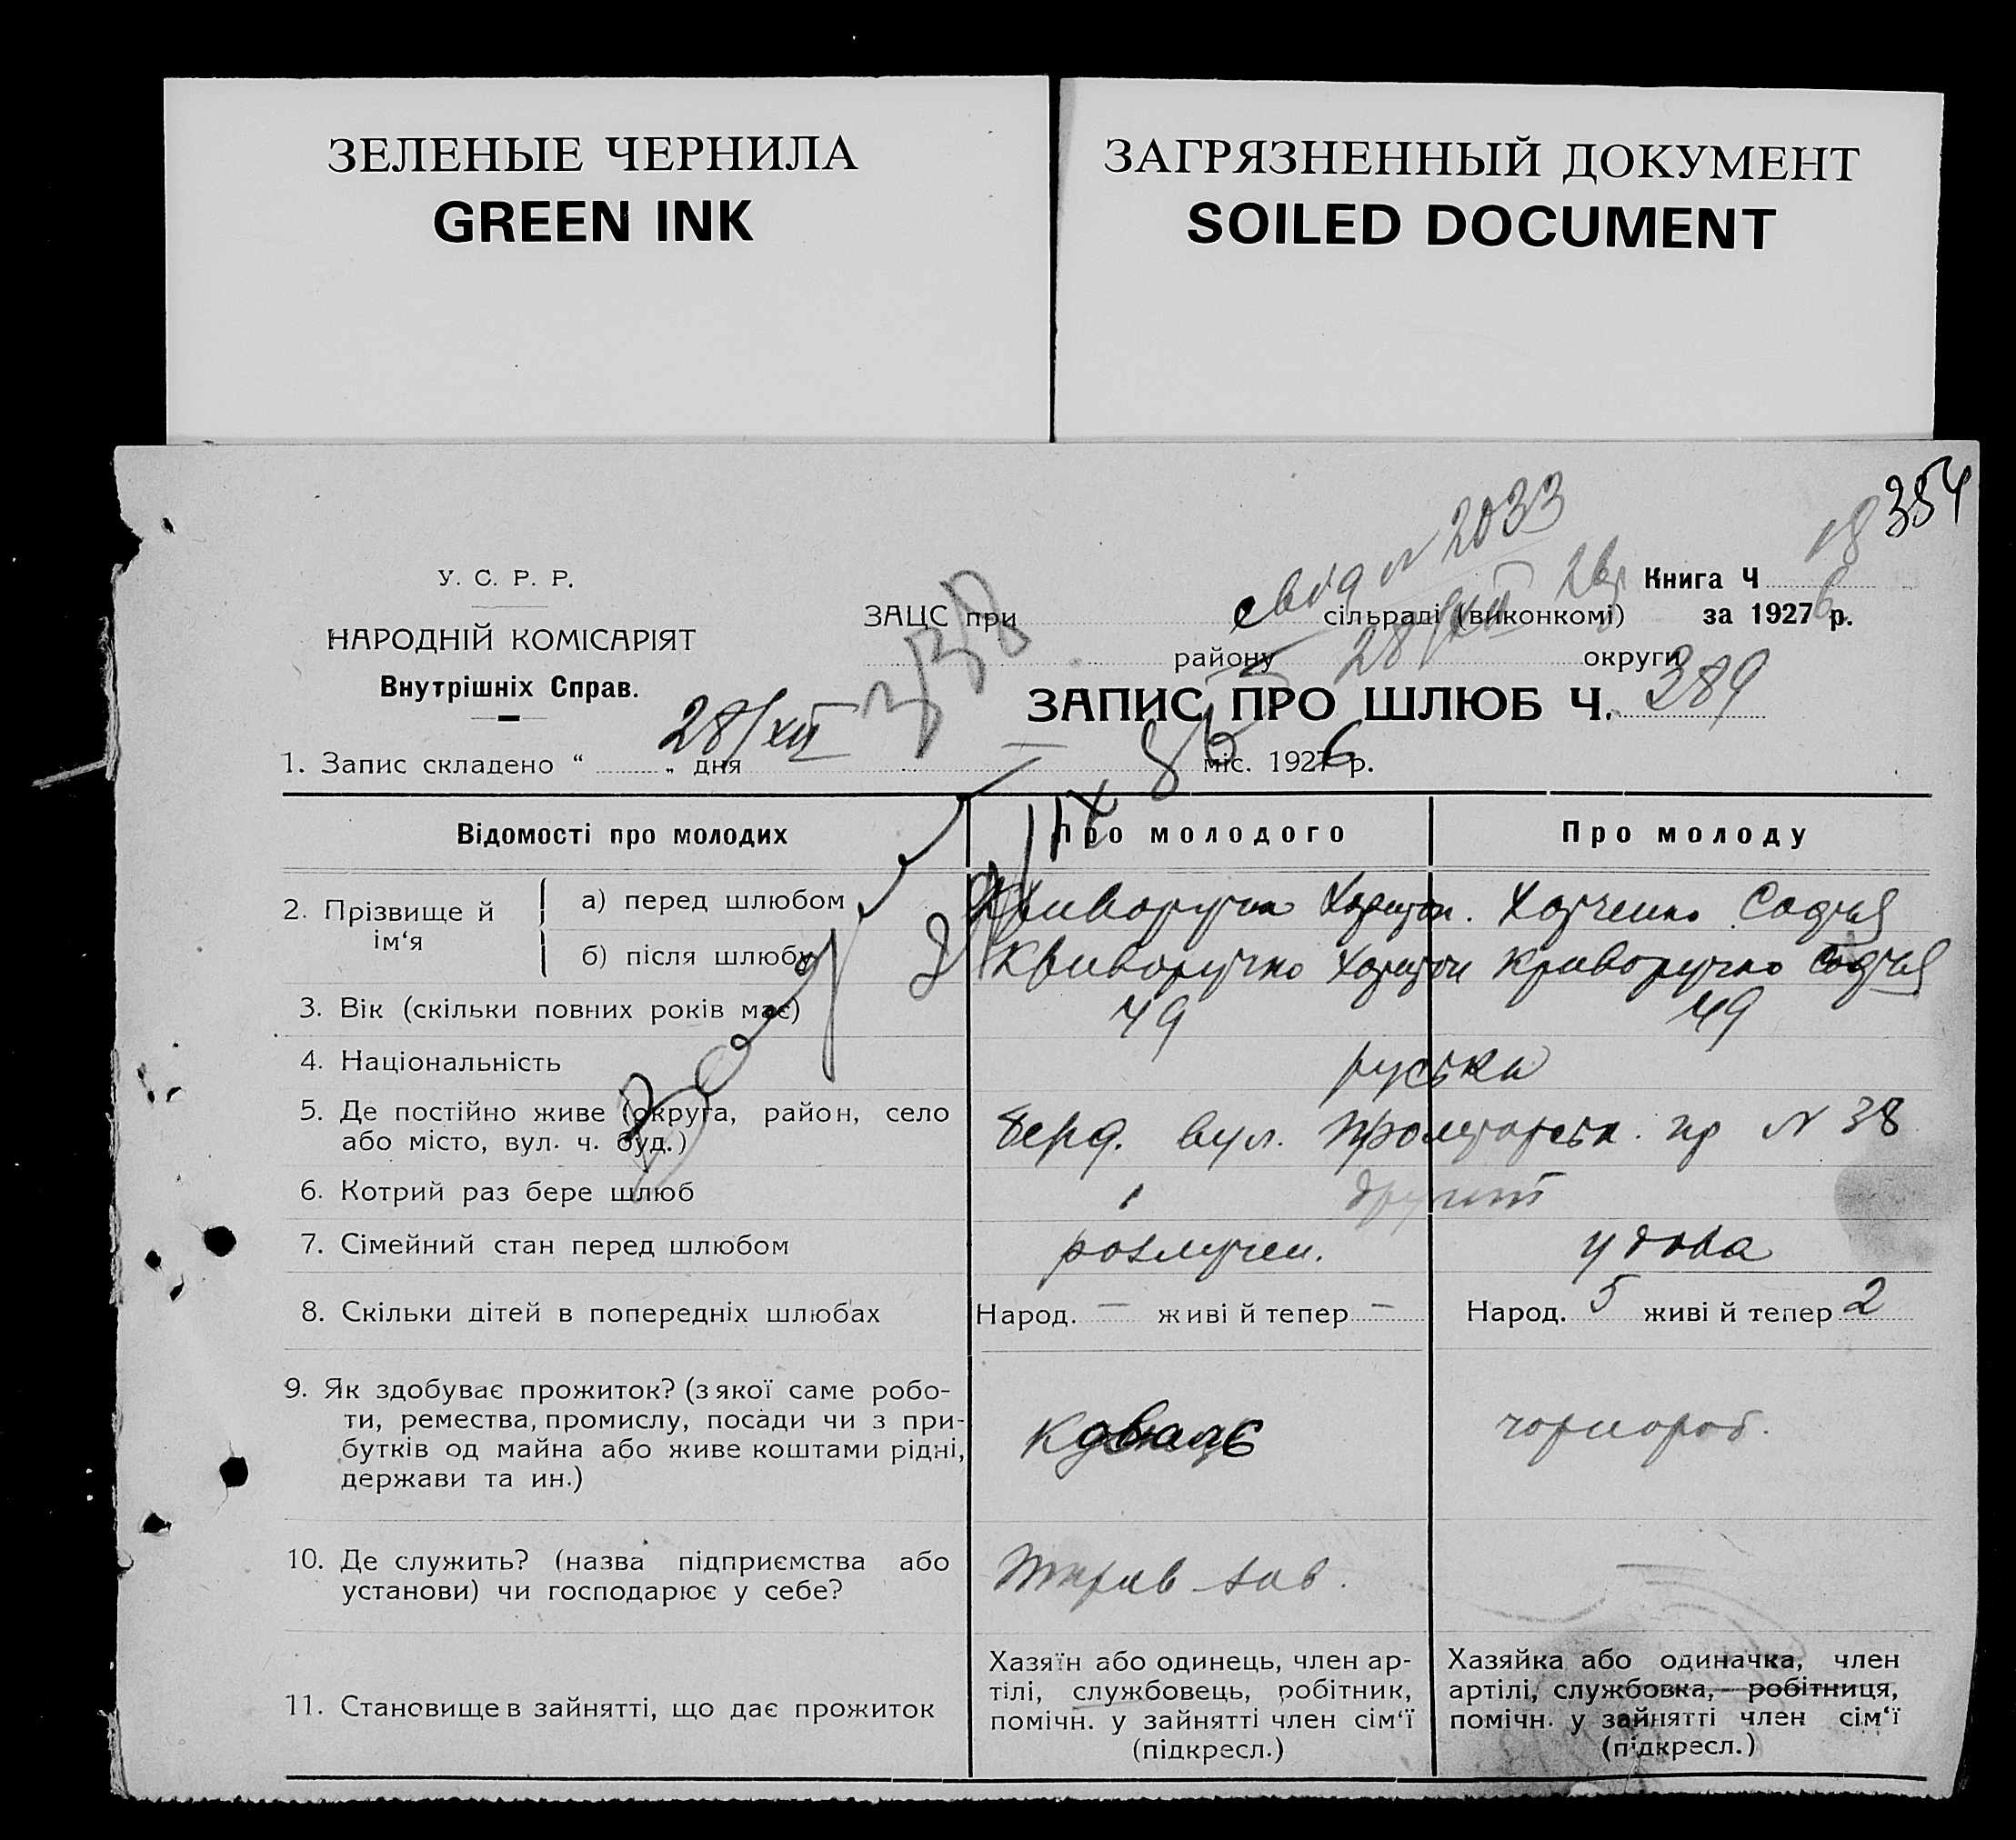 ЗЕЛЕНЫЕ ЧЕРНИЛА
GREEN INK
ЗАГРЯЗНЕННЫЙ ДОКУМЕНТ
SOILED DOCUMENT
354
18
свід N 2033
28/XII 26р
У. С. Р. Р.
НАРОДНІЙ КОМІСАРІЯТ
Внутрішніх Справ.
Книга Ч
ЗАЦС при сільраді (виконкомі) за 1927 6 р.
району округи
ЗАПИС ПРО ШЛЮБ Ч. 389
1. Запис складено “ „ дня 28/XII міс. 1927 6 р.
Відомості про молодих Про молодого Про молоду
2. Прізвище й ім‘я
а) перед шлюбом Криворучко Харитон. Харченко Софія
б) після шлюбу Криворучко Харитон Криворучко Софія
3. Вік (скільки повних років має) 49 49
4. Національність руська
5. Де постійно живе (округа, район, село
або місто, вул. ч. буд.) Берд. вул. Пролетарськ. пр N 38
6. Котрий раз бере шлюб другий
7. Сімейний стан перед шлюбом розлучен. удова
8. Скільки дітей в попередніх шлюбах Народ. — живі й тепер — Народ. 5 живі й тепер 2
9. Як здобуває прожиток? (з якої саме робо-
ти, ремества, промислу, посади чи з при-
бутків од майна або живе коштами рідні,
держави та ин.)
чорнороб.
10. Де служить? (назва підприємства або
установи) чи господарює у себе?
зав. —
11. Становище в зайнятті, що дає прожиток
Хазяїн або одинець, член ар-
тілі, службовець, робітник,
помічн. у зайнятті член сім‘ї
(підкресл.)
Хазяйка або одиначка, член
артілі, службовка, робітниця,
помічн. у зайнятті член сім‘ї
(підкресл.)